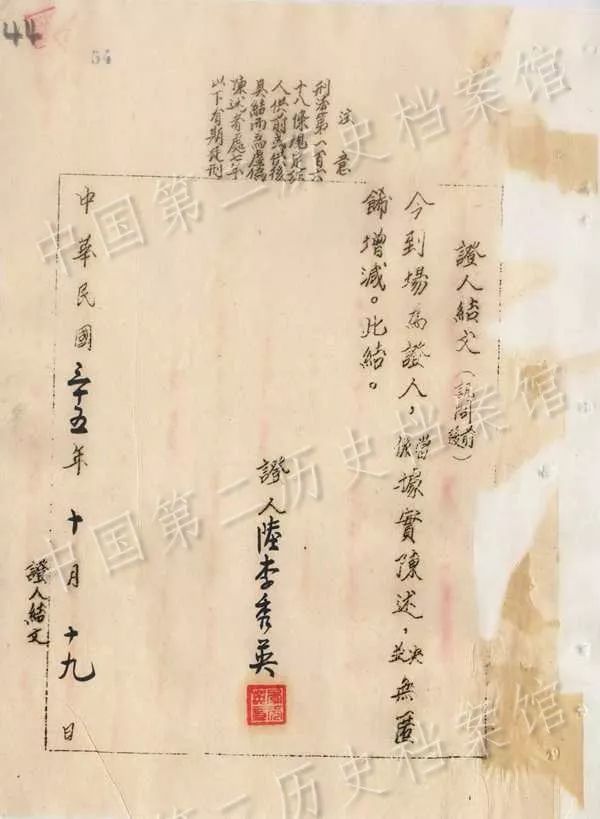 44
54
注意
刑法第一百六
十八條規定證
人供前或供後
具結而為虛偽
陳述者處七年
以下有期徒刑
證人結文（訊問前後）
今到場為證人，當係據實陳述，並決無匿
飾增減。此結。
證人陸李秀英
中華民國三十五年十月十九日
證人結文
中国第二历史档案馆
中国第二历史档案馆
中国第二历史档案馆